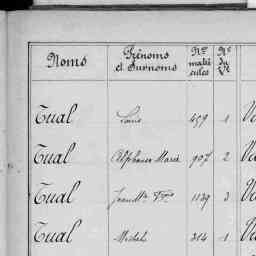 Noms Prénoms et Surnoms Nos matri cules No du Vt
Tual Louis 459 1 Va
Tual Alphonse Marie 997 2 Va
Tual Jean 1139 3 Va
Tual Michel 314 1 Va